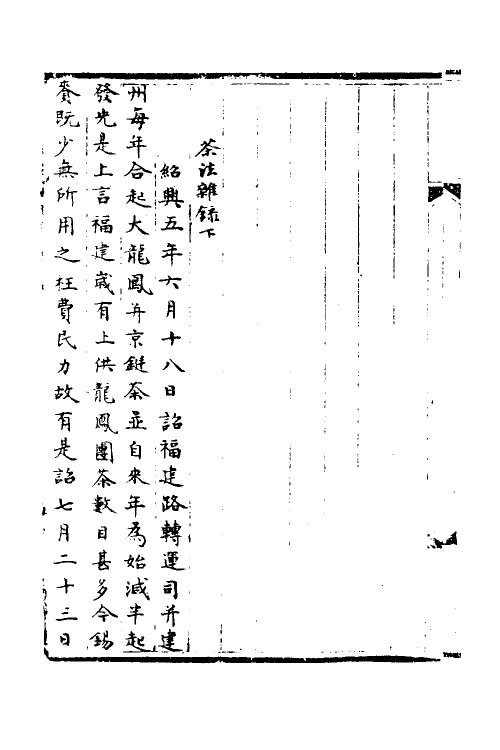 茶法雜錄下
紹興五年六月十八日詔福建路轉運司并建
州每年合起大龍鳳并京鋌茶並自來年為始減半起
發先是上言福建歲有上供龍鳳團茶數目甚多今錫
賚既少無所用之枉費民力故有是詔七月二十三日